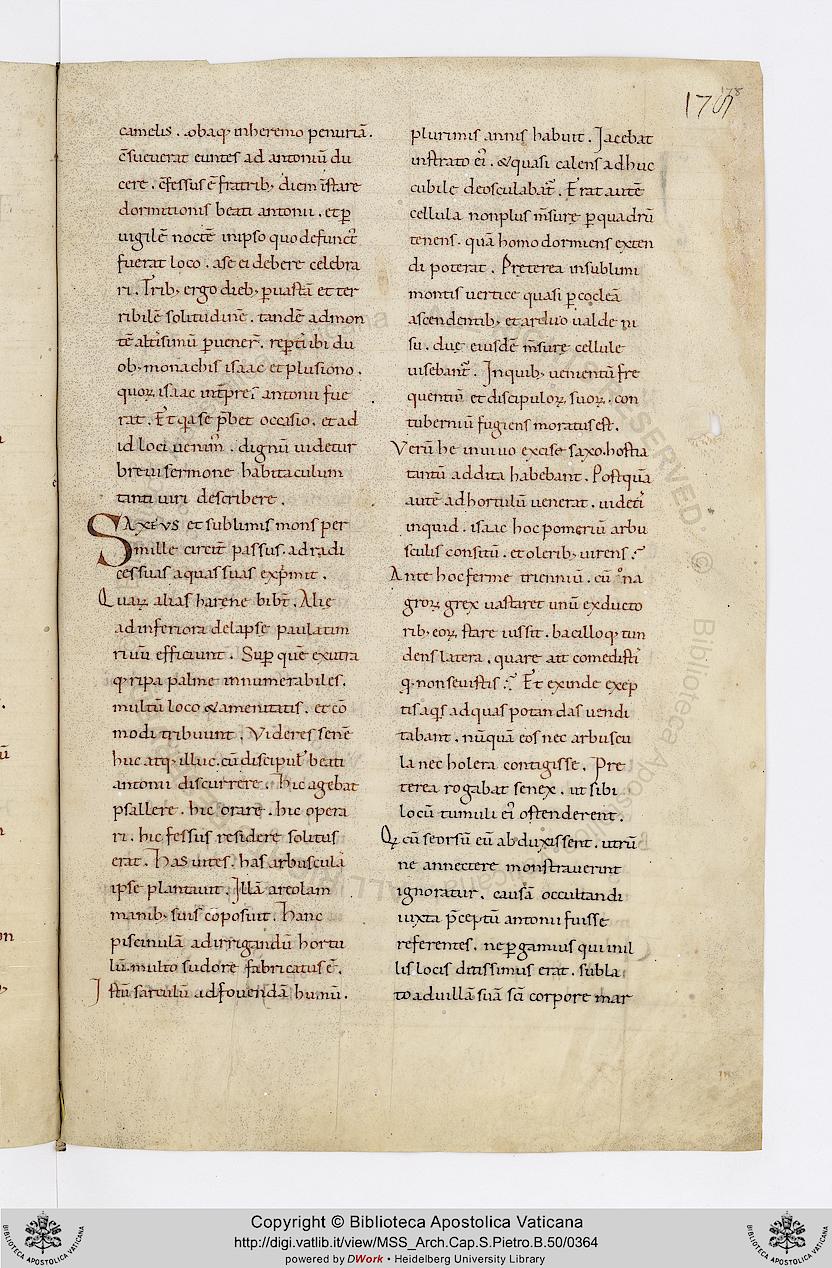 175
178
camelis . obaq; inheremo penuriā .
c̄sueuerat euntes ad antoniū du
cere . c̄fessus ē fratrib; diem īstare
dormitionis beati antonii . et ꝑ
uigilē noctē inipso quo defunct᷒
fuerat loco . ase ei debere celebra
ri . Trib; ergo dieb; ꝑuastā et ter
ribilē solitudinē . tandē admon
tē altisimū ꝑuener̄ . reꝑti ibi du
ob; monachis isaac et plusiono .
quoꝝ isaac int̄pres antonii fue
rat . Et qase p̄bet occasio . et ad
id loci uenim᷒ . dignū uidetur
breui sermone habitaculum
tanti uiri describere .
SAXEVS et sublimis mons per
mille circit᷒ passus . adradi
ces suas aquas suas exp̄mit .
Quaꝝ alias harene bibt̄ . Alie
adinferiora delapse paulatim
riuū efficiunt . Sup̄ quē exutra
q; ripa palme innumerabiles .
multū loco &amenitatis . et cō
modi tribuunt . Videres senē
huc atq; illuc . cū discipul᷒ beati
antonii discurrere . hic agebat
psallere . hic orare . hic opera
ri . hic fessus residere solitus
erat . has uites . has arbusculā
ipse plantauit . Illā areolam
manib; suis cōposuit . hanc
piscinulā adirrigandū hortu
lū . multo sudore fabricatus ē .
Istū sarculū adfouendā humū .
plurimis annis habuit . Iacebat
instrato ei᷒ . &quasi calens adhuc
cubile deosculabat᷒ . Erat autē
cellula nonplus m̄sure ꝑquadrū
tenens . quā homo dormiens exten
di poterat . Preterea insublimi
montis uertice quasi ꝑcocleā
ascendentib; et arduo ualde ni
su . duę eiusdē m̄sure cellule
uisebant᷒ . Inquib; uenientū fre
quentiū et discipuloꝝ suoꝝ . con
tuberniū fugiens moratus est .
Verū he inuiuo excise saxo . hostia
tantū addita habebant . Postquā
autē adhortulū uenerat . uideti᷒
inquid . isaac hoc pomeriū arbu
sculis consitū . et olerib; uirens :
Ante hoc ferme trienniū . cū ona
groꝝ grex uastaret unū exducto
rib; eoꝝ stare iussit . bacilloq; tun
dens latera . quare ait comedisti᷒
q; nonseuistis : Et exinde excep
tis aqs̓ adquas potandas uendi
tabant . nūquā eos nec arbuscu
la nec holera contigisse . Pre
terea rogabat senex . ut sibi
locū tumuli ei᷒ ostenderent .
Qꝝ cū seorsū eū abduxissent . utrū
ne annectere monstrauerint
ignoratur . causā occultandi
iuxta p̄ceptū antonii fuisse
referentes . ne ꝑgamius qui inil
lis locis ditissimus erat . subla
to aduillā suā sc̄i corpore mar
Copyright © Biblioteca Apostolica Vaticana
http://digi.vatlib.it/view/MSS_Arch.Cap.S.Pietro.B.50/0364
powered by DWork • Heidelberg University Library